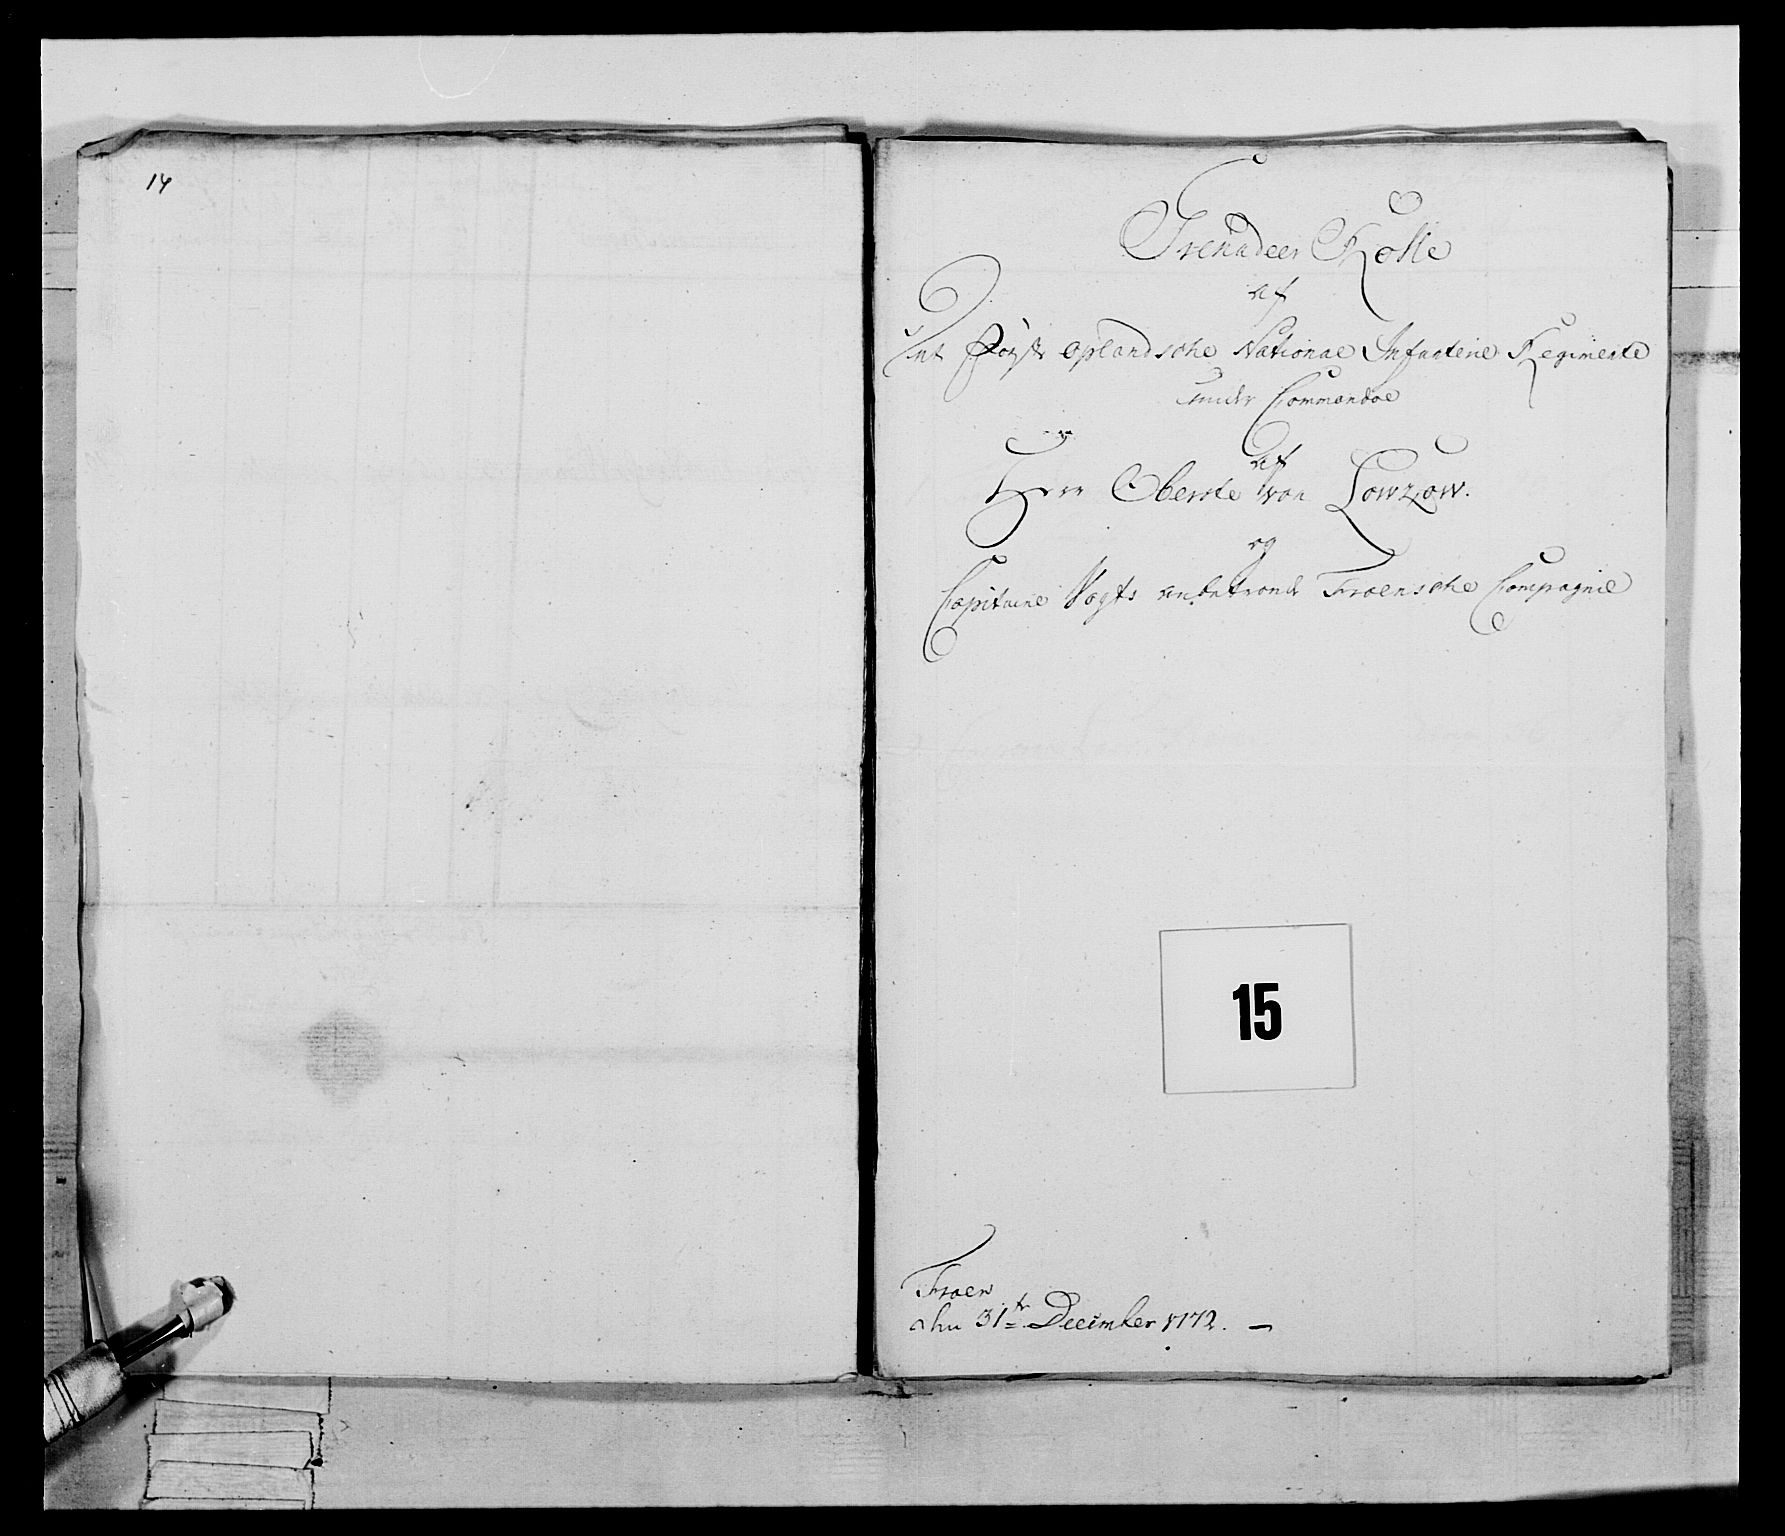 14
Grenadeer Rolle
af
Det Første Oplandsche National Infanterie Regimente
under Commandoe
af
Herr Oberste von Lowzow.
og
Capitaine Vogts anbetroede Froensche Compagnie
15
Froen
den 31te December 1772. —